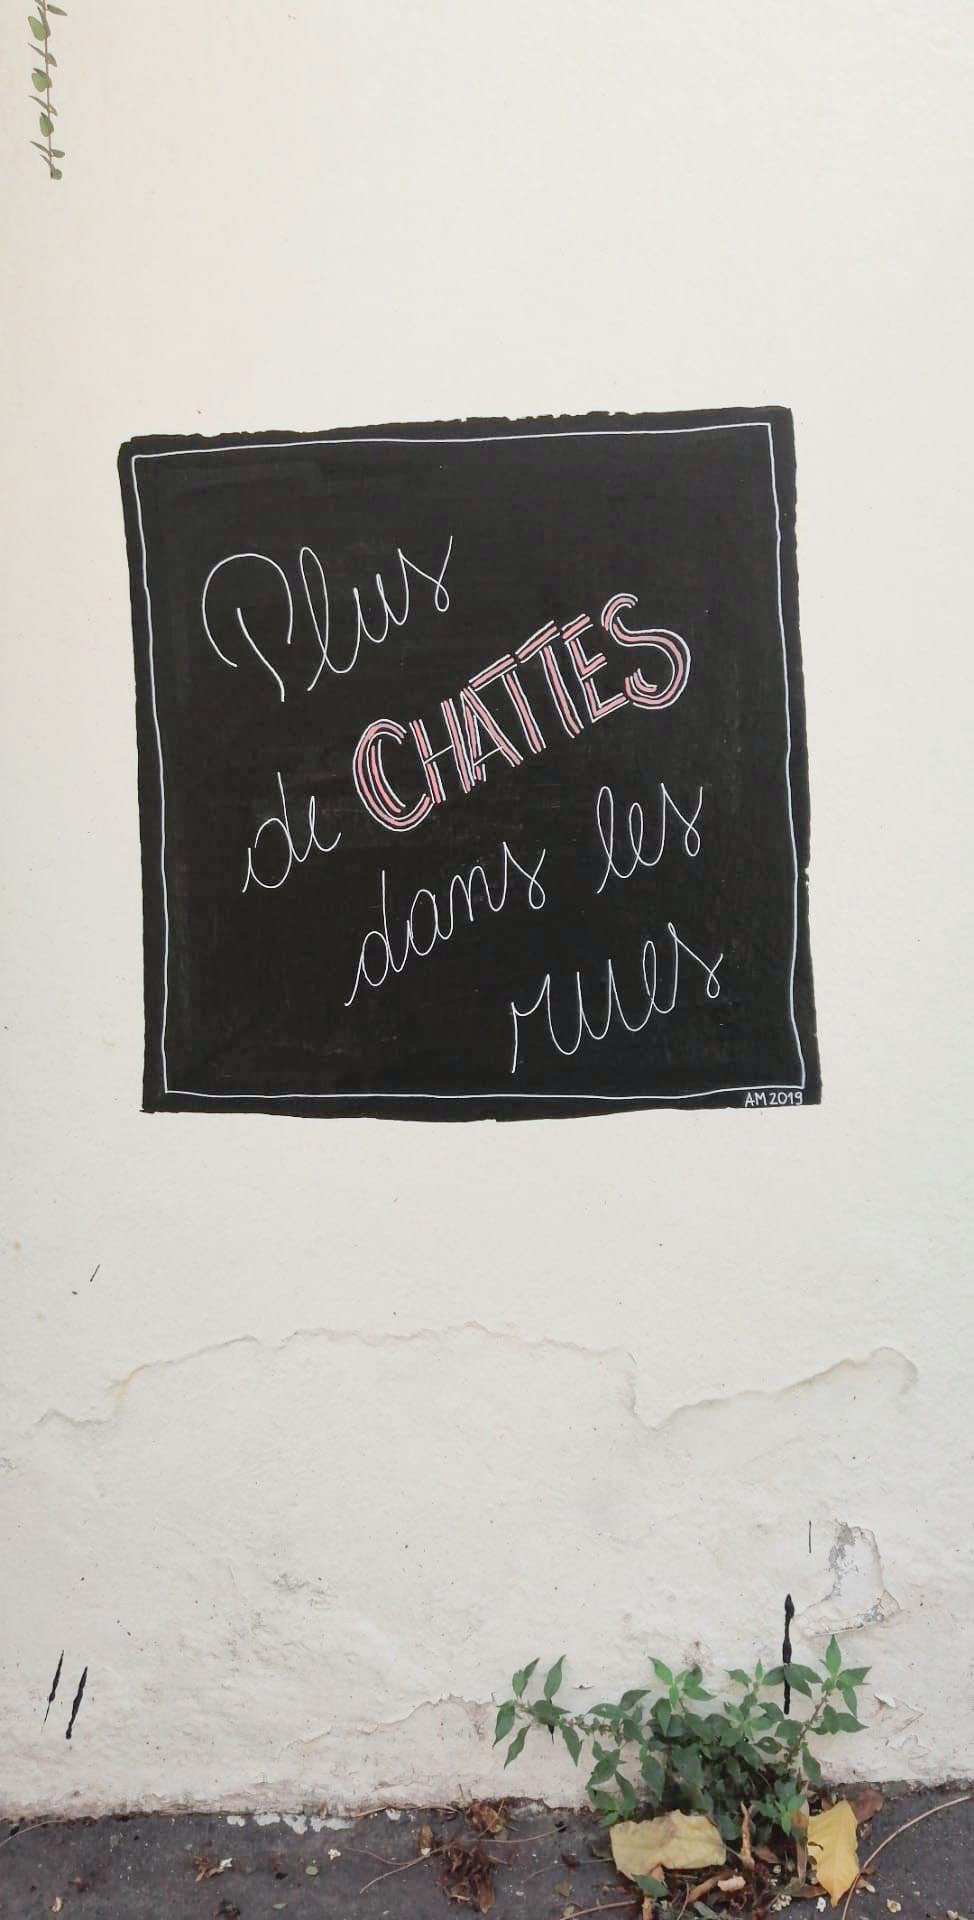 Plus
de CHATTES
dans les
rues
AM 2019